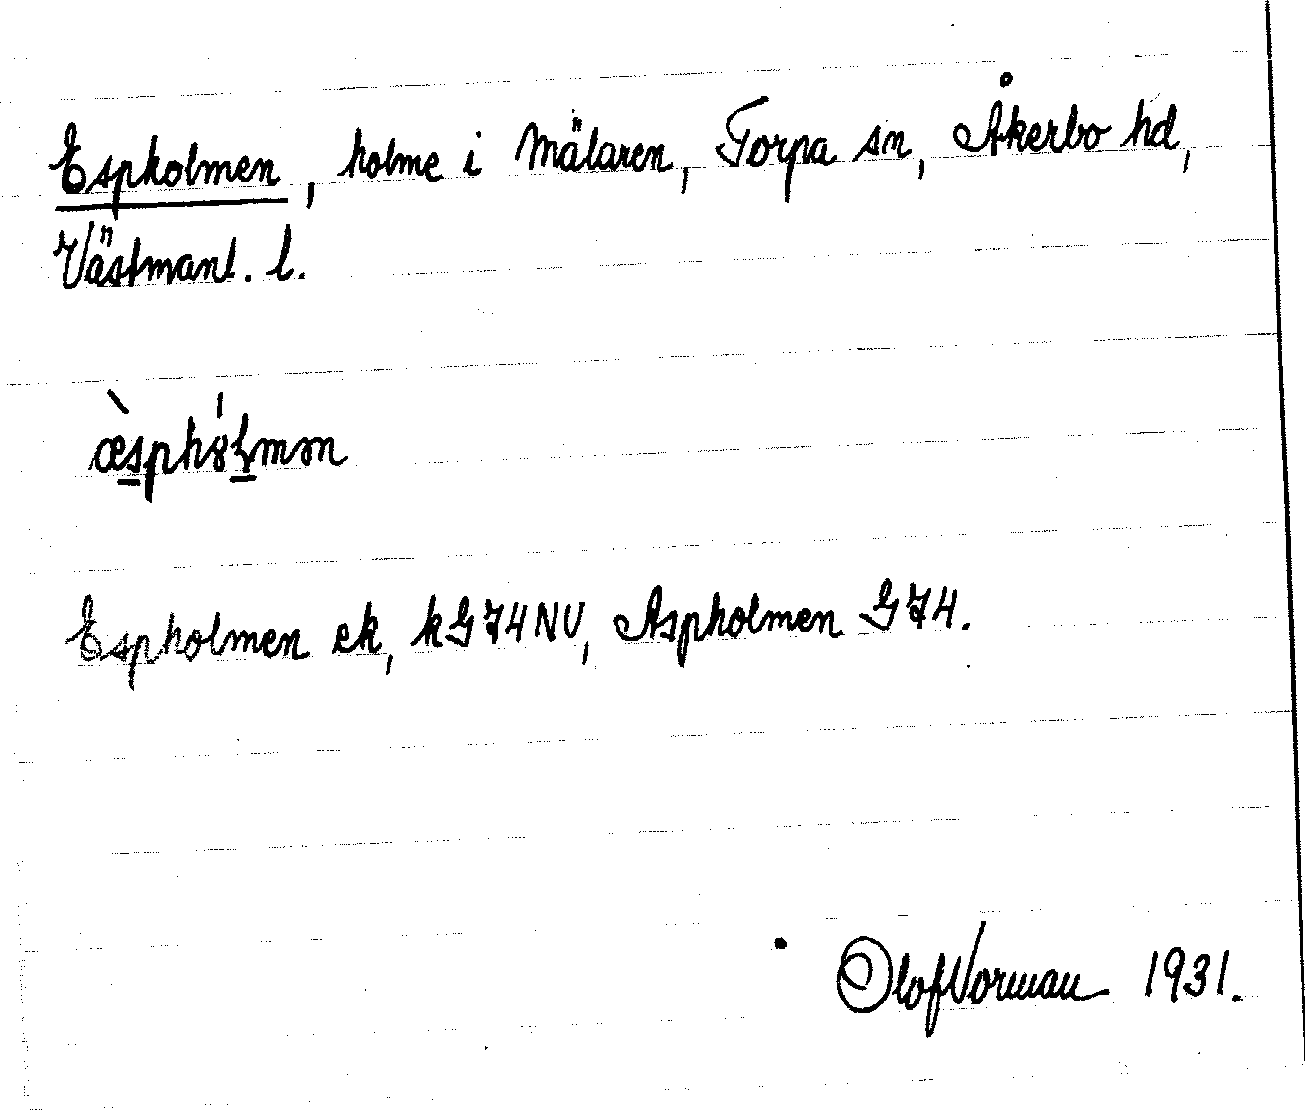 Espholmen, holme i Mälaren, Torpa sn, Åkerbo hd,
Västmanl. l.
Espholmen ek, kG74NV, Aspholmen G74.
Olof Norman 1931.